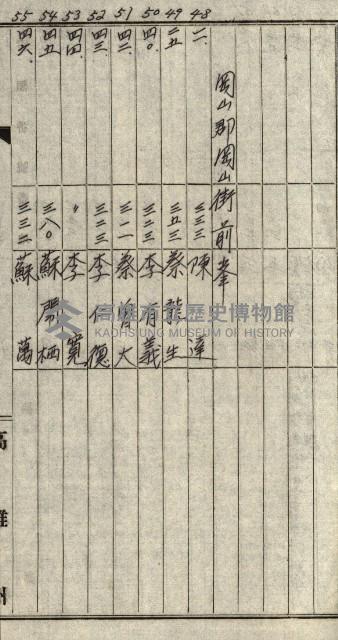 岡山郡岡山街前峯
48 二一、 三三三 陳 達
49 二五、 三五三 蔡 龍 生
50 四〇、 三三三 李 有 義
51 四二、 三一一 蔡 有 大
52 四三、 三二三 李 德
53 四四、 〃 李 寬
54 四五、 三八〇 蘇 開 栖
55 四六、 三三二 蘇 萬
高雄州
高雄市立歷史博物館
KAOHSIUNG MUSEUM OF HISTORY